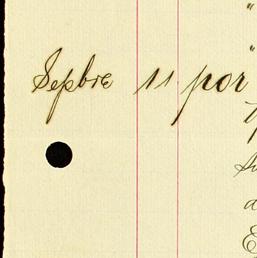 "
"
Sepbre 11 por